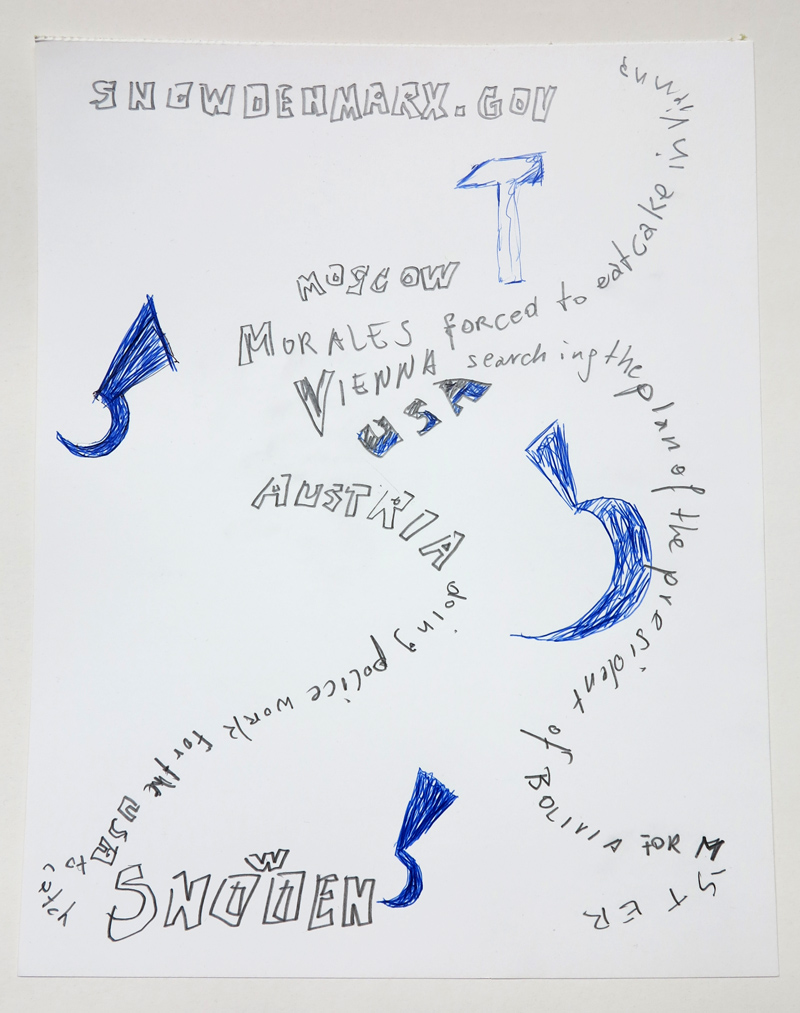 SNOWDENMARX.GOV
MOSCOW
MORALES forced to eat cake in vienna
VIENNA searching the plan of the president of BOLIVIA FOR MYSTER
USA
AUSTRIA doing police work for the USA to catch
SNOWDEN